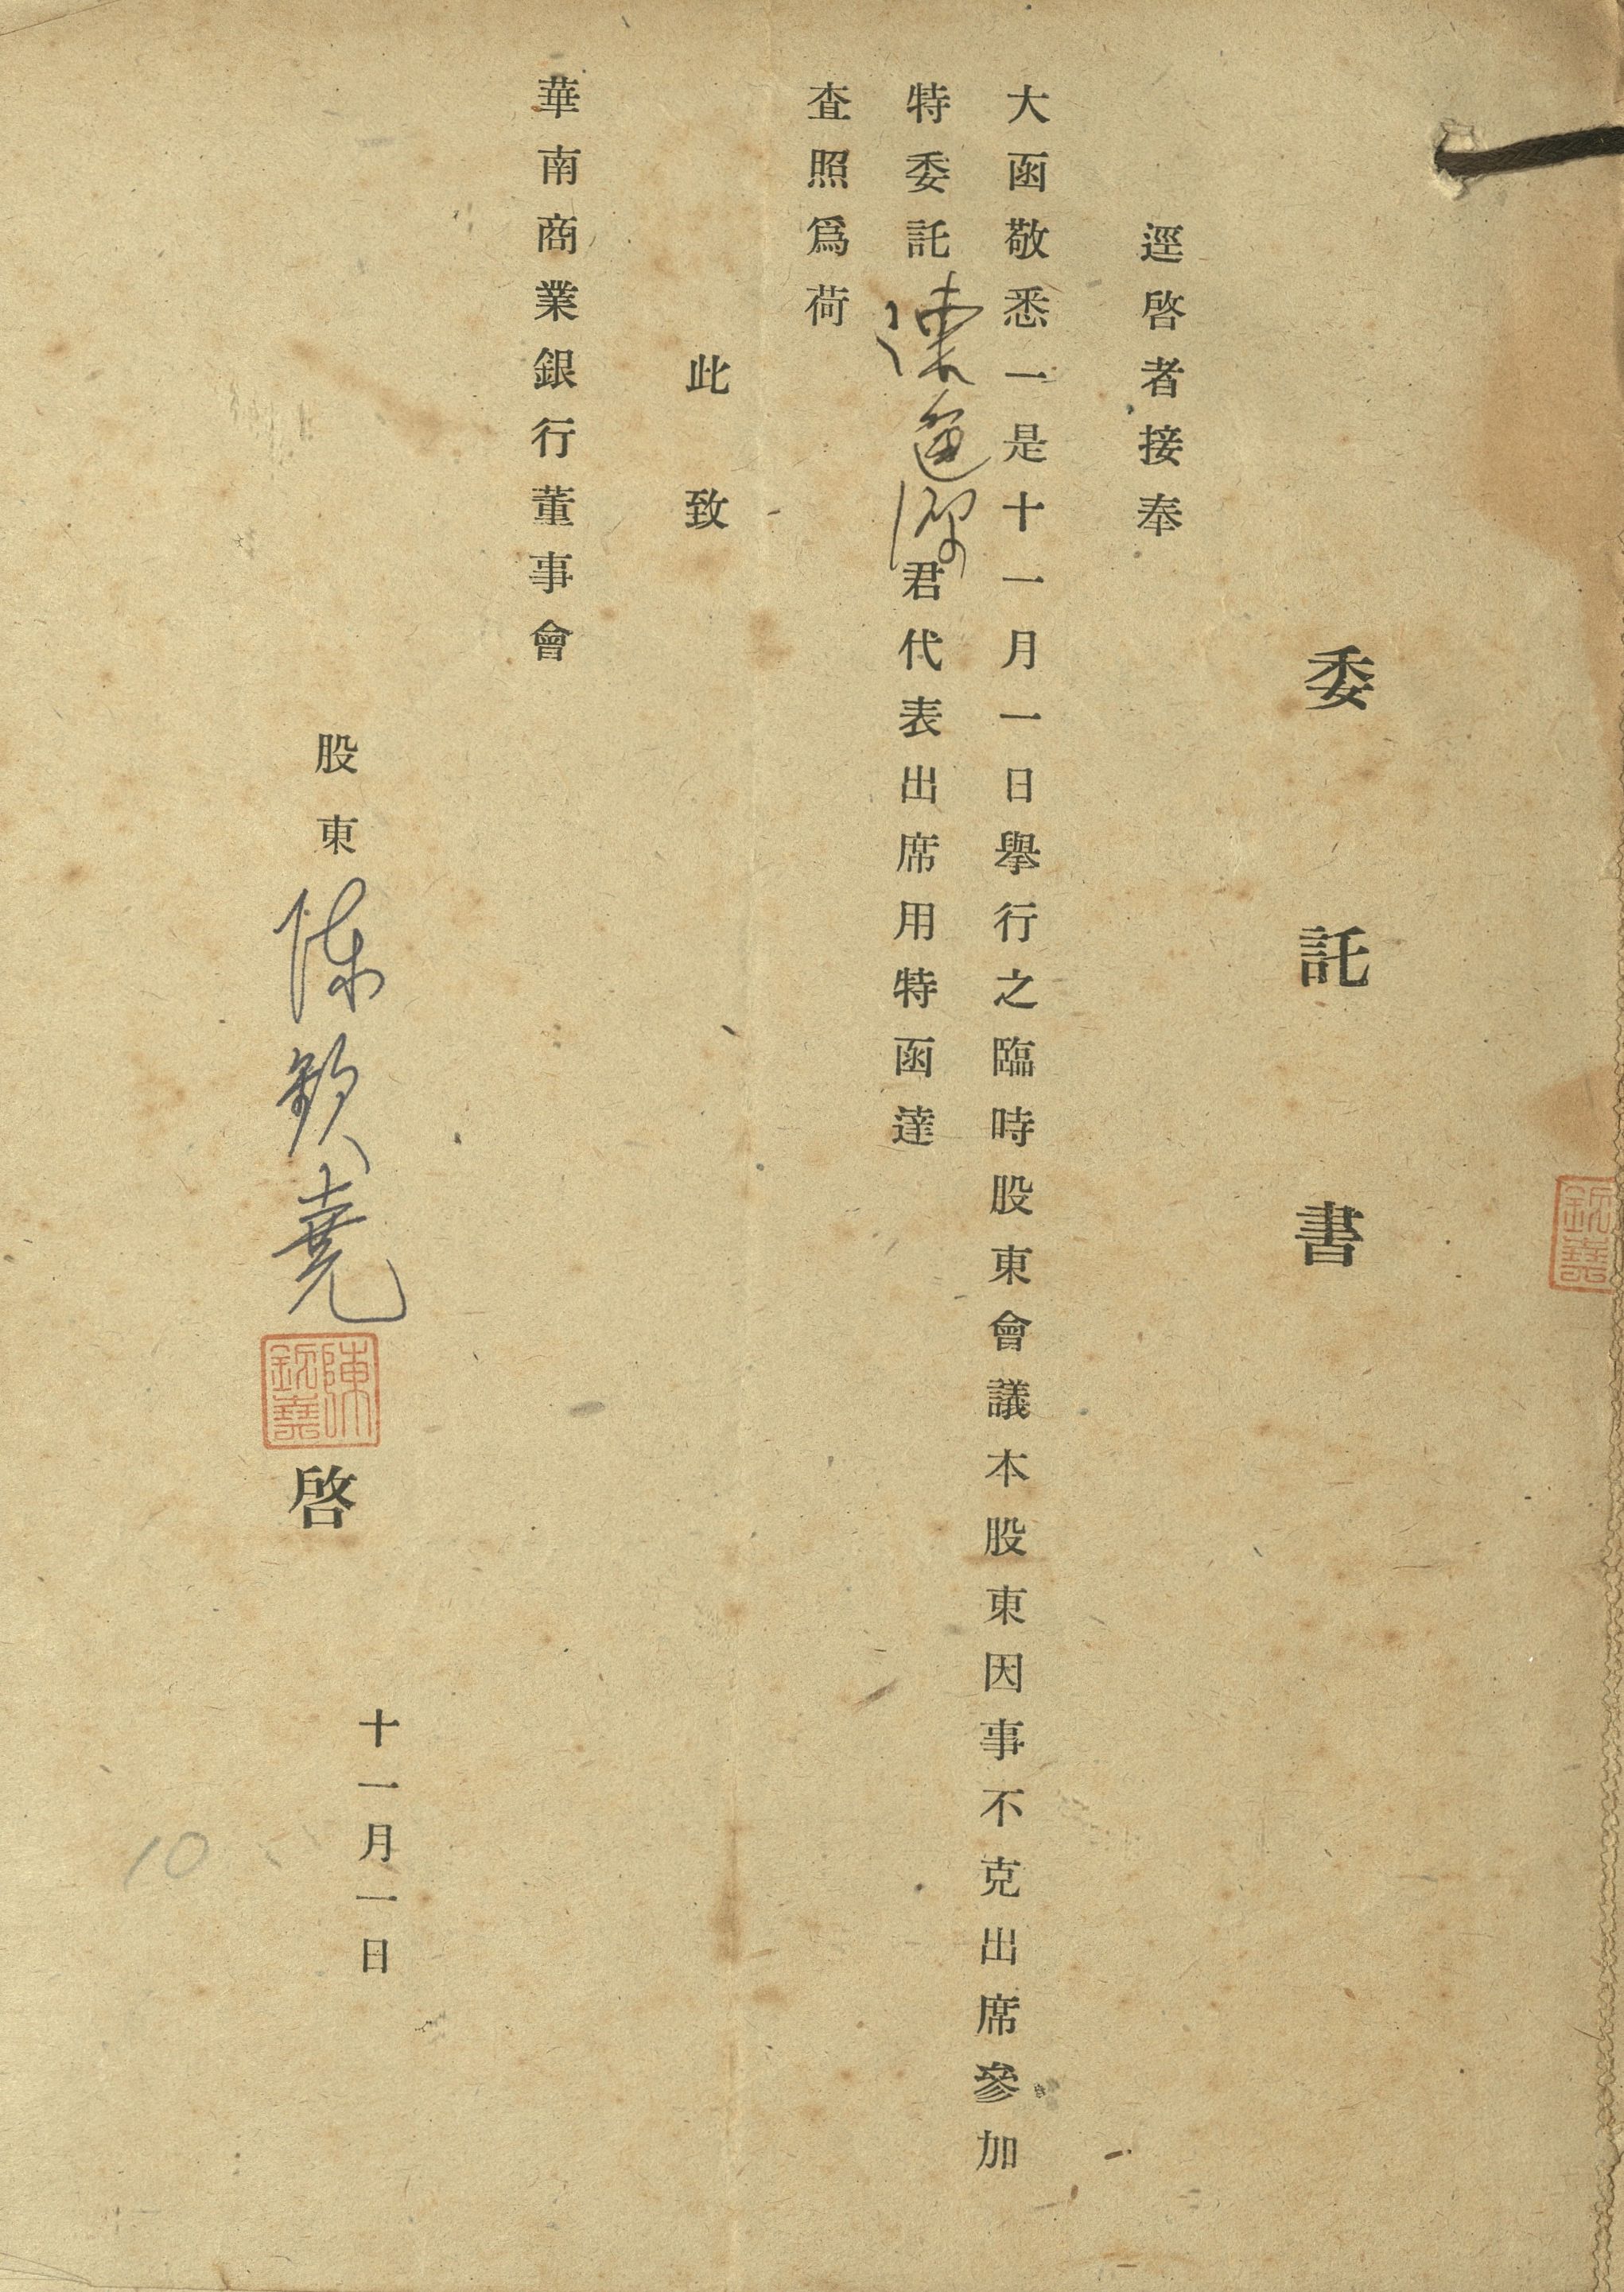 委託書
逕啓者接奉
大函敬悉一是十一月一日擧行之臨時股東會議本股東因事不克出席參加
特委託陳逢源君代表出席用特函達
査照爲荷
此致
華南商業銀行董事會
股東陳欽堯啓
陳欽堯
十一月一日
10
欽堯